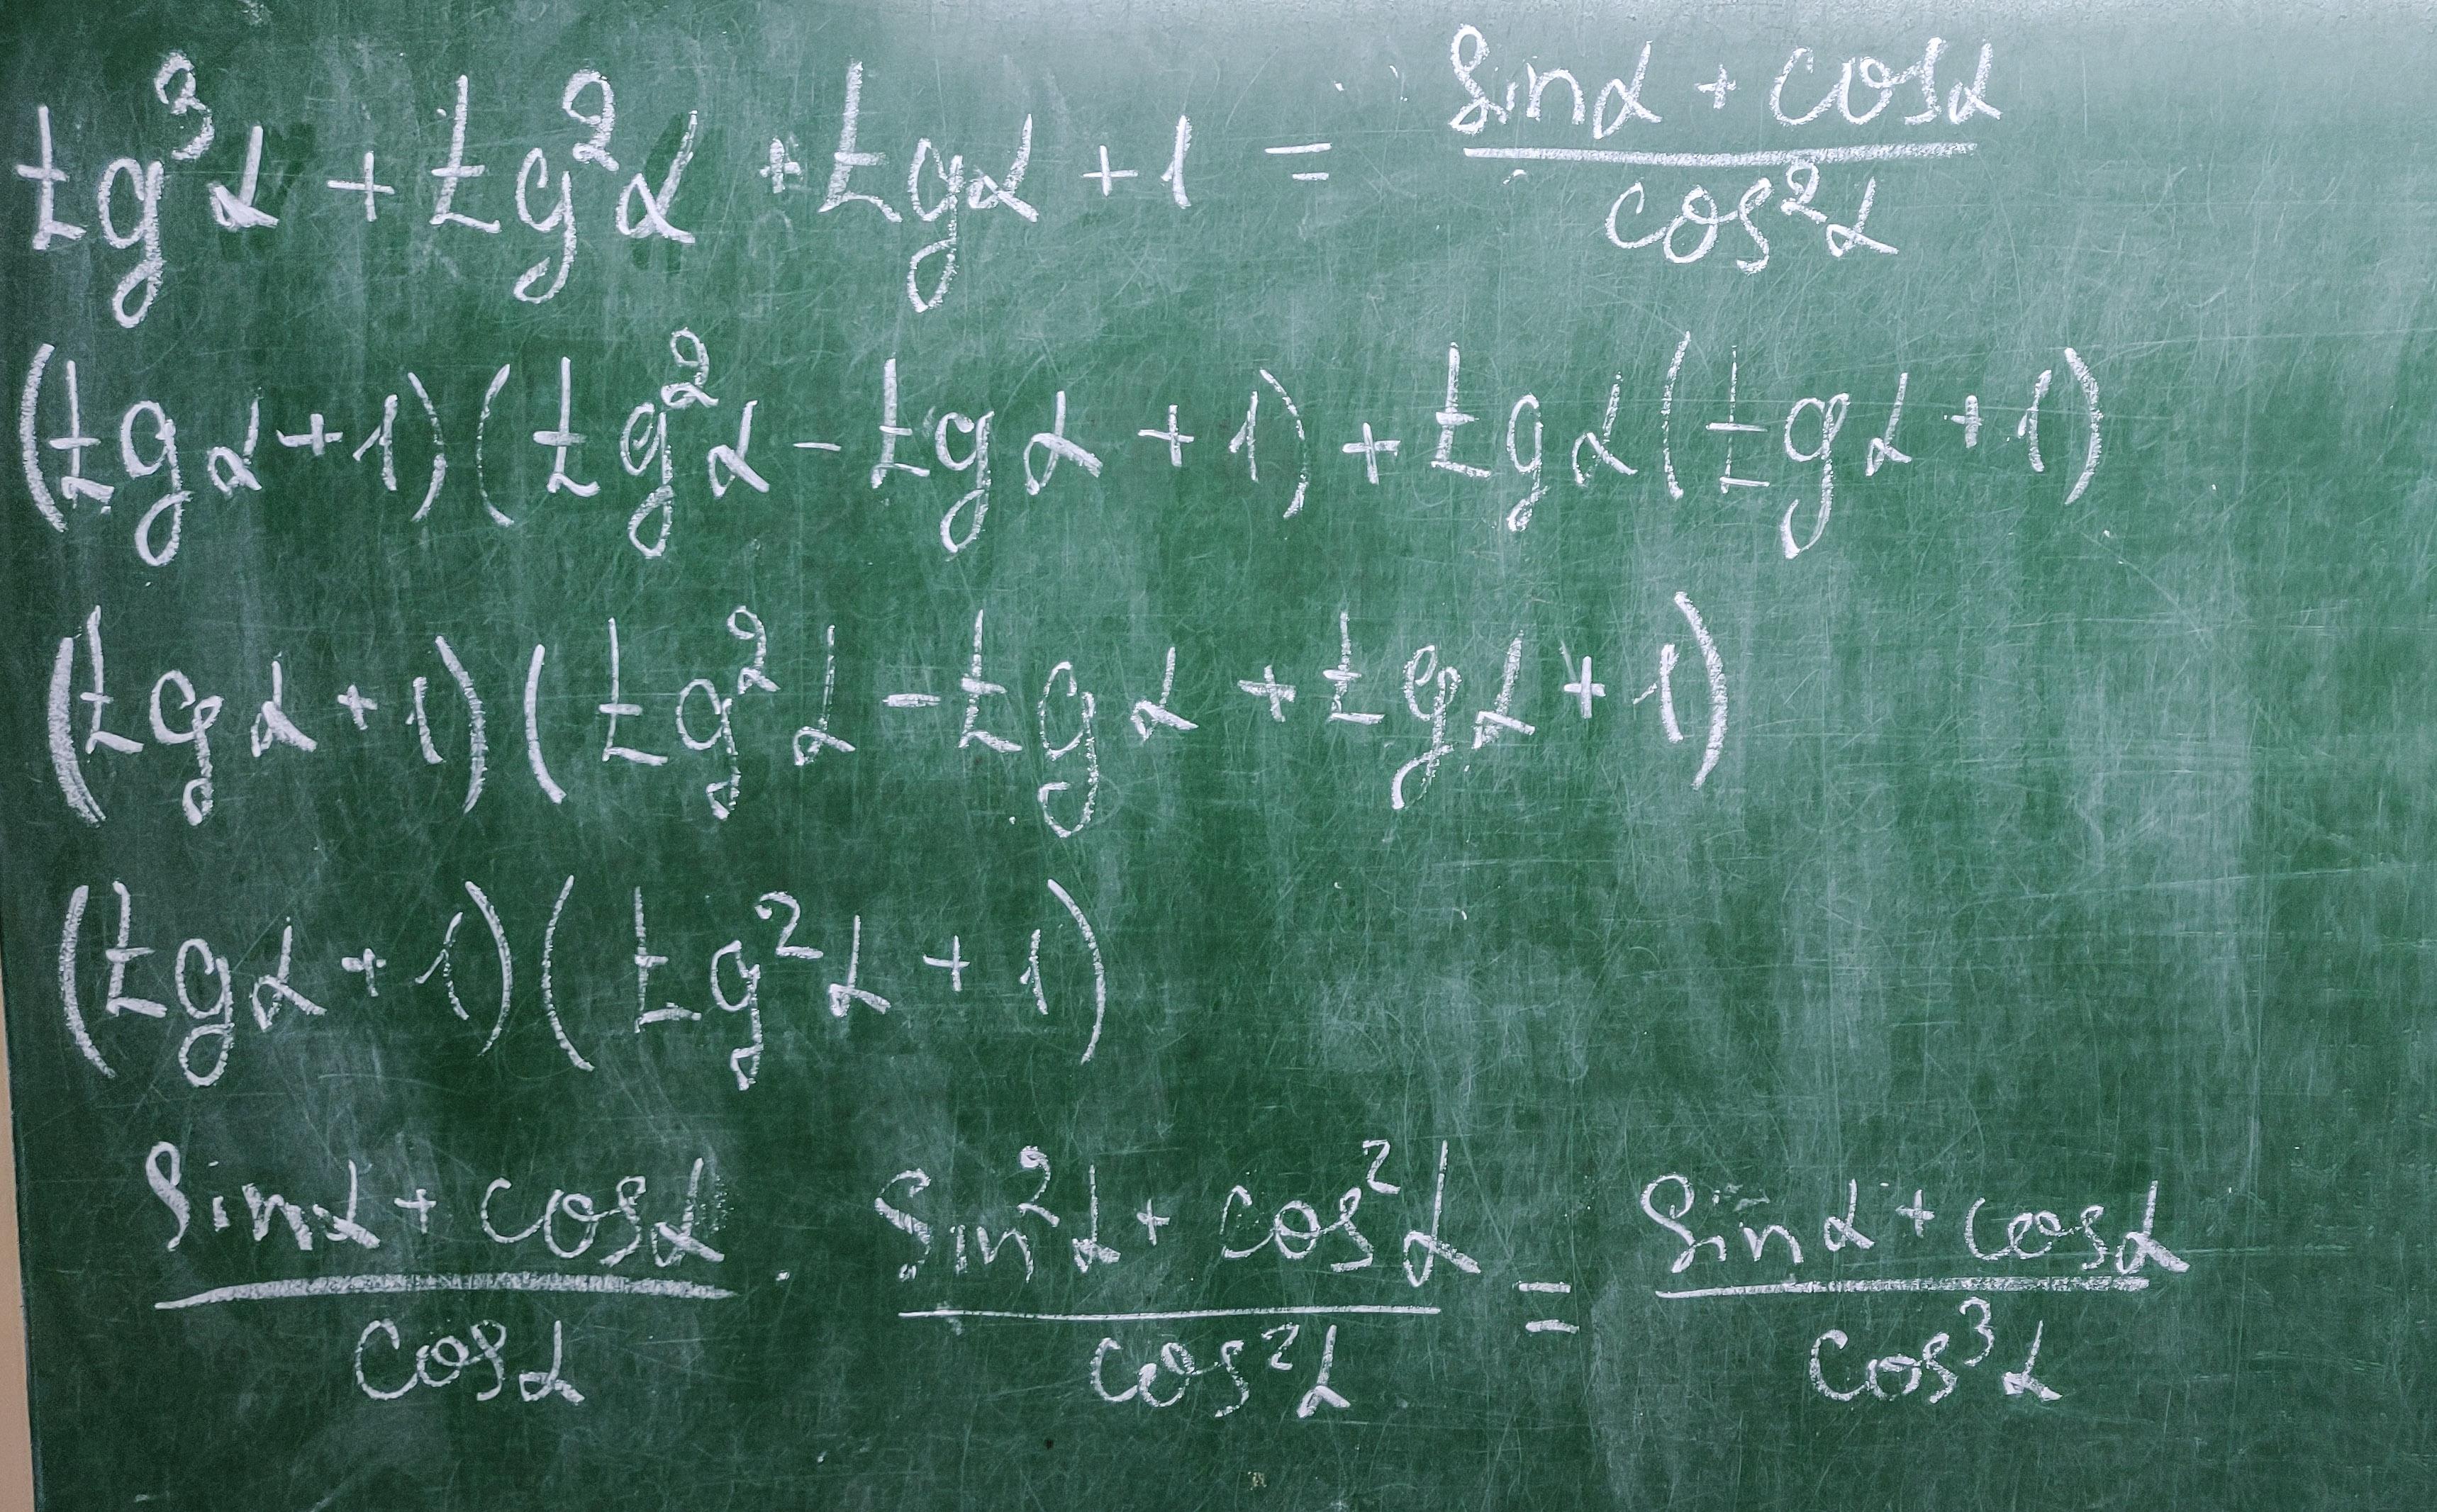 tg³α + tg²α + tgα + 1 = (sinα + cosα)/(cos²α)
(tgα+1)(tg²α - tgα + 1) + tgα(tgα+1)
(tgα+1)(tg²α - tgα + tgα + 1)
(tgα+1)(tg²α + 1)
(sinα + cosα)/(cosα) · (sin²α + cos²α)/(cos²α) = (sinα + cosα)/(cos³α)